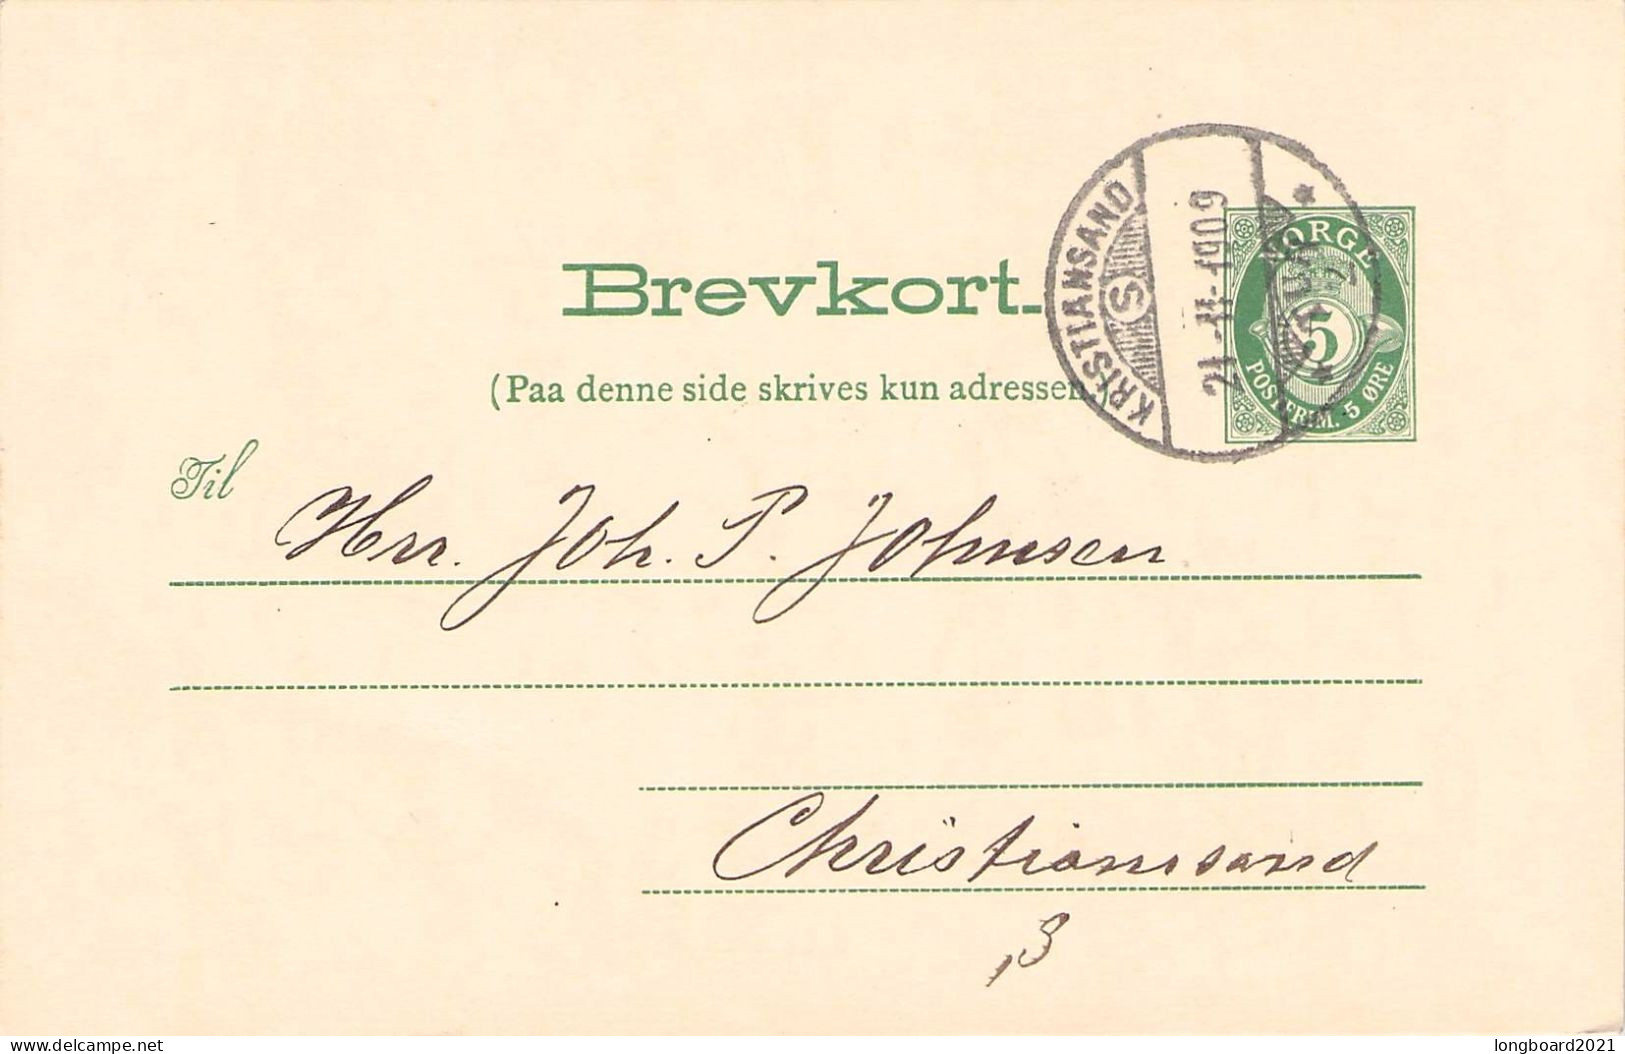 Brevkort.
(Paa denne side skrives kun adressen)
KRISTIANSAND
S
21-11-1909
NORGE
5
POSTFRIM. 5 ØRE
Til
Hrr. Joh. P. Johnsen
Christianssand
delcampe.net
longboard2021